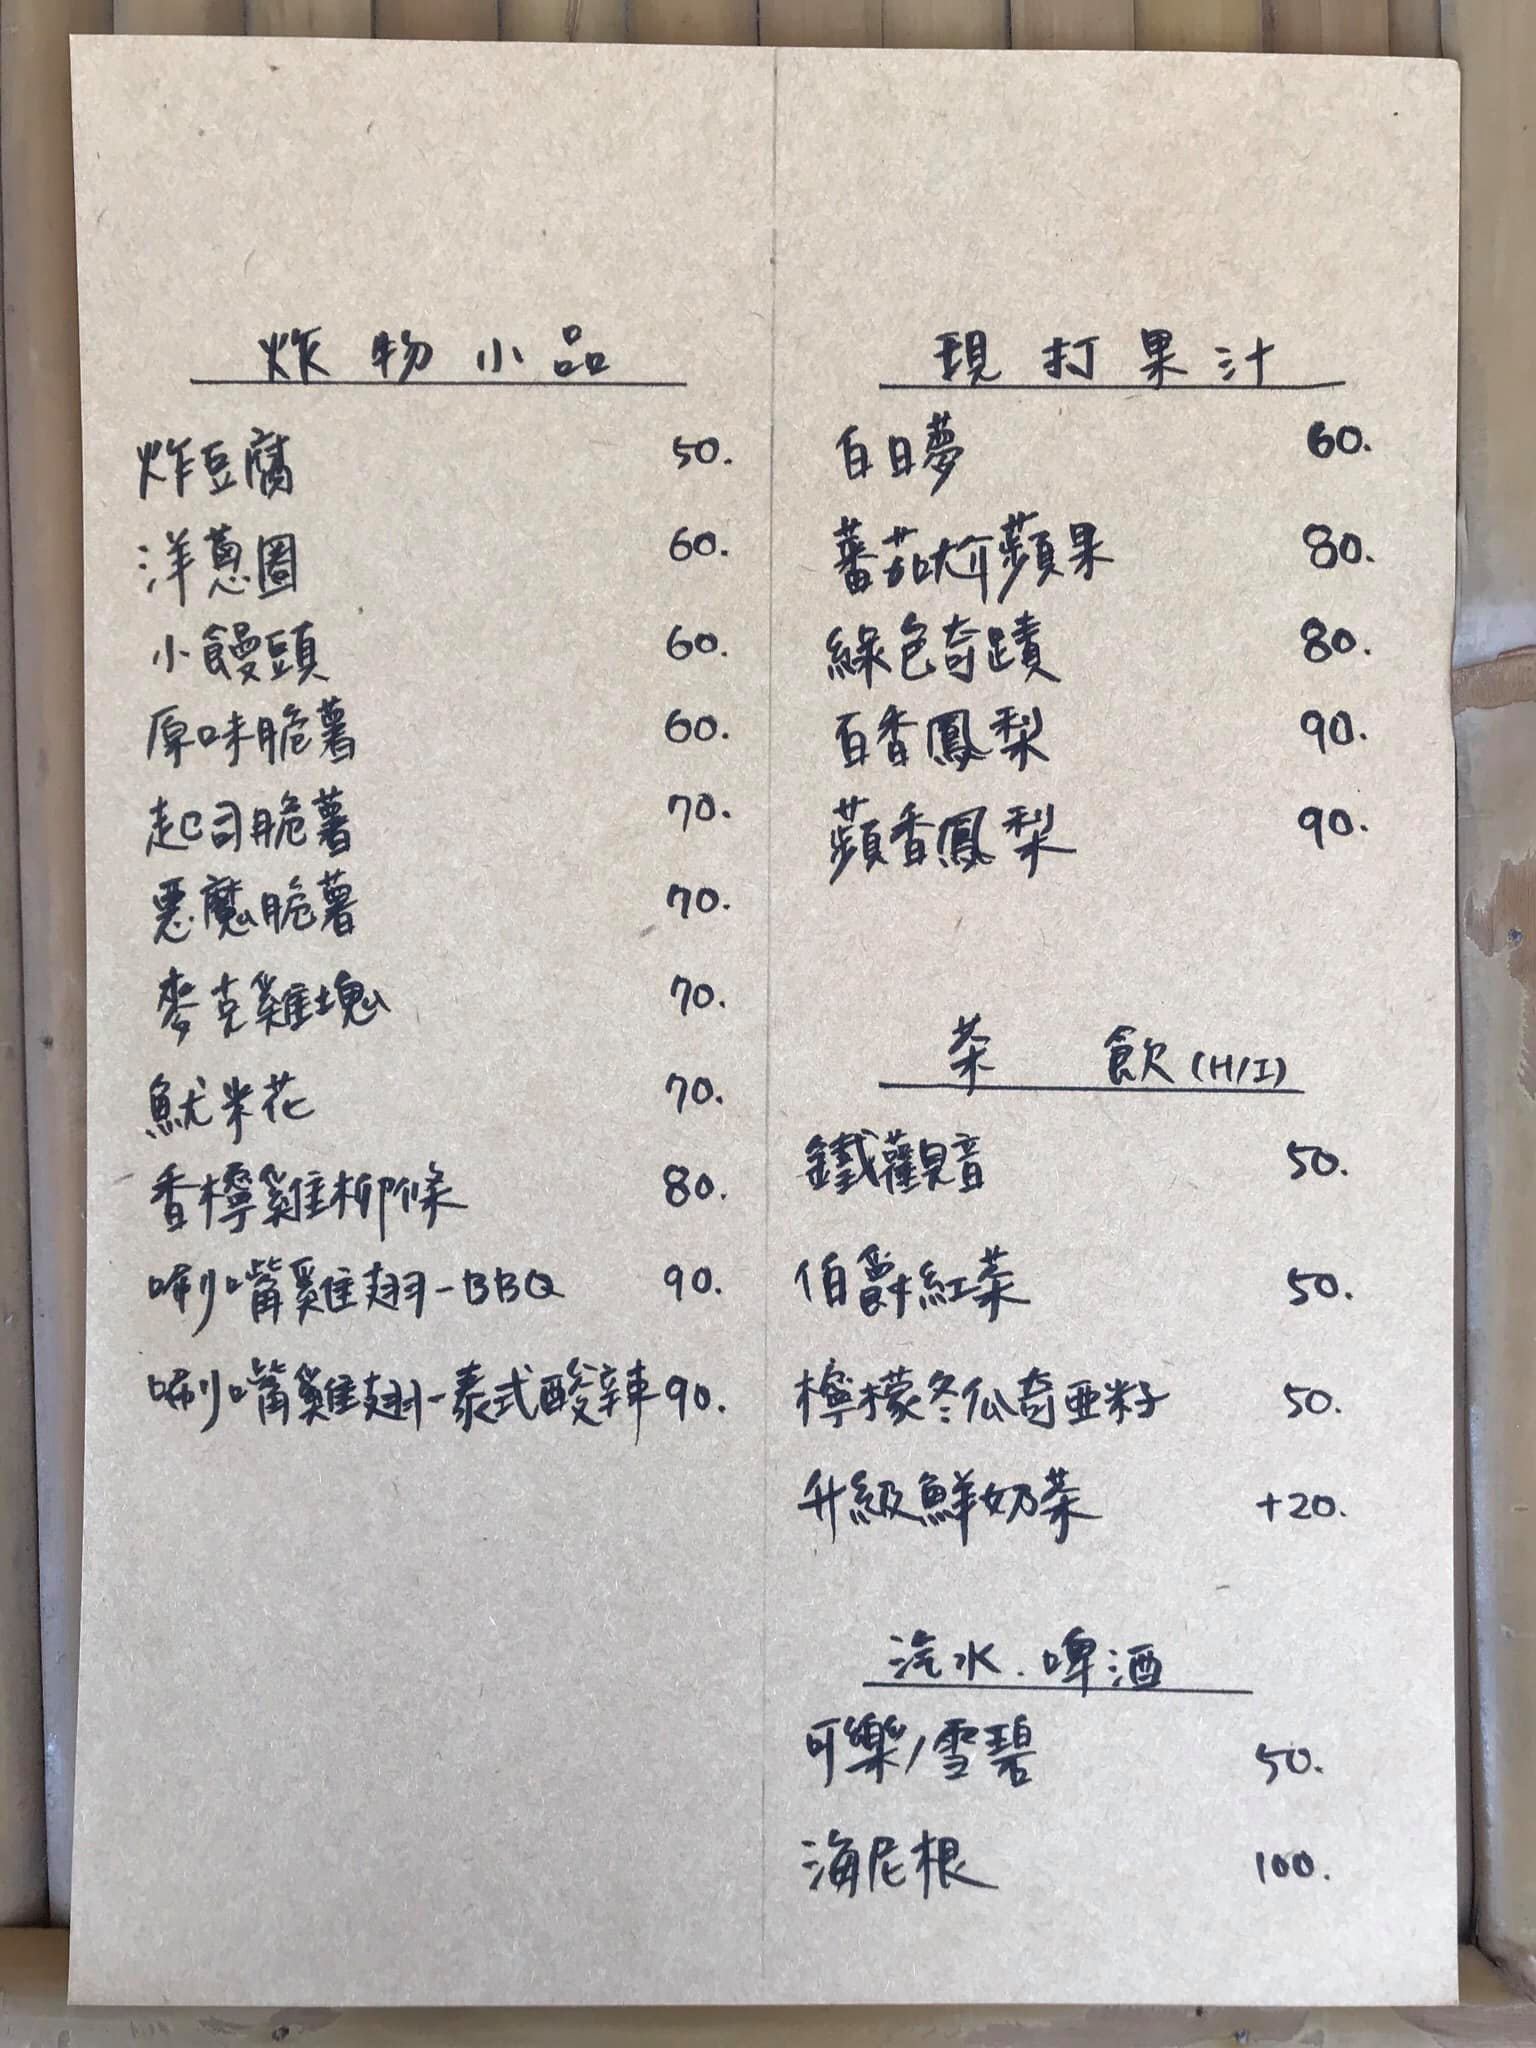 炸物小品
炸豆腐 50.
洋蔥圈 60.
小饅頭 60.
原味脆薯 60.
起司脆薯 70.
惡魔脆薯 70.
麥克雞塊 70.
魷米花 70.
香檸雞柳條 80.
唰嘴雞翅-BBQ 90.
唰嘴雞翅-泰式酸辣 90.
現打果汁
白日夢 60.
蕃茄尬蘋果 80.
綠色奇蹟 80.
百香鳳梨 90.
蘋香鳳梨 90.
茶 飲(H/I)
鐵觀音 50.
伯爵紅茶 50.
檸檬冬瓜奇亞籽 50.
升級鮮奶茶 +20.
汽水.啤酒
可樂/雪碧 50.
海尼根 100.